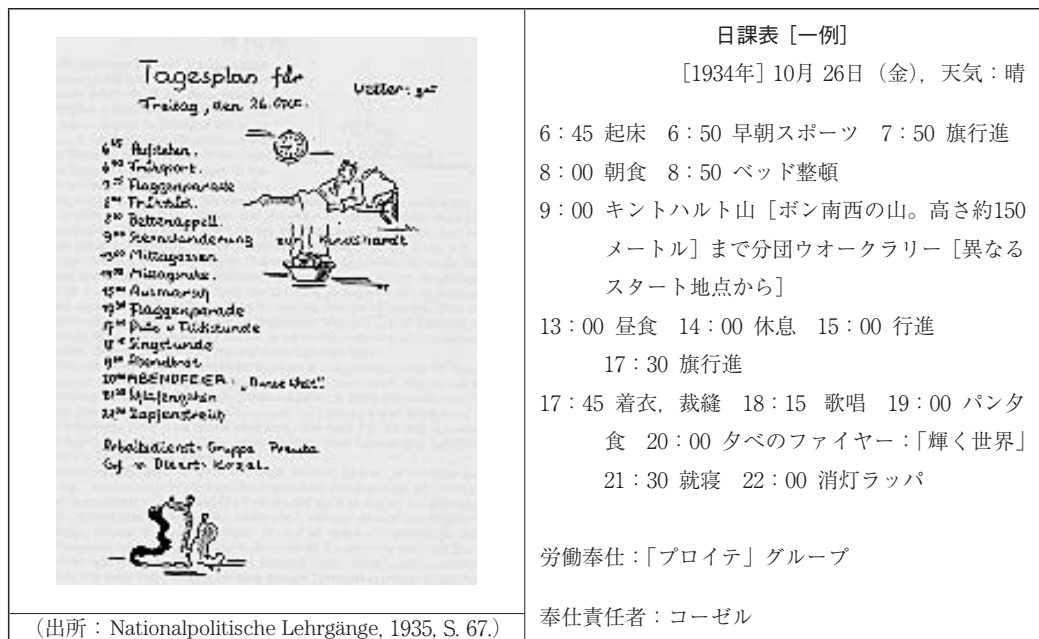 Tagesplan für
Wetter: gut
Freitag, den 26. Okt.
Aufstehen.
Frühsport.
Flaggenparade
Frühstück.
Bettenappell.
9⁰⁰ Sternwanderung zum
Mittagessen
Mittagsruhe.
15⁰⁰ Ausmarsch
Flaggenparade
Putz u Flickstunde
Singstunde
Abendbrot
20⁰⁰ ABENDFEIER:
Schlafengehen
Zapfenstreich
Arbeitsdienst: Gruppe
(出所：Nationalpolitische Lehrgänge, 1935, S. 67.)
日課表［一例］
［1934年］10月 26日（金），天気：晴
6：45 起床　6：50 早朝スポーツ　7：50 旗行進
8：00 朝食　8：50 ベッド整頓
9：00 キントハルト山［ボン南西の山。高さ約150
メートル］まで分団ウオークラリー［異なる
スタート地点から］
13：00 昼食　14：00 休息　15：00 行進
17：30 旗行進
17：45 着衣，裁縫　18：15 歌唱　19：00 パン夕
食　20：00 夕べのファイヤー：「輝く世界」
21：30 就寝　22：00 消灯ラッパ
労働奉仕：「プロイテ」グループ
奉仕責任者：コーゼル